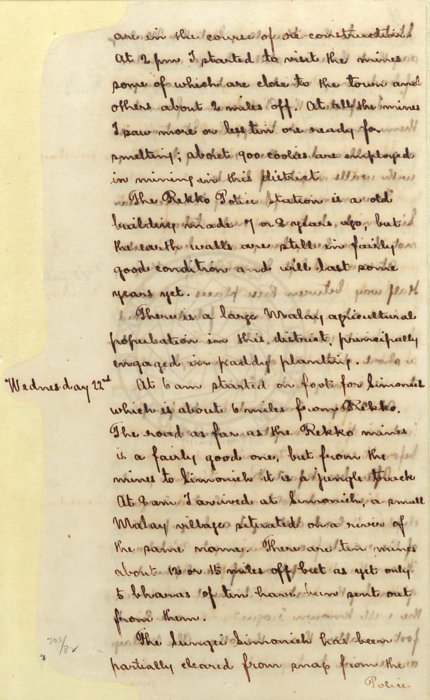 are in the course of re-construction.
At 2 pm I started to visit the mines
some of which are close to the town and
others about 2 miles off. At all the mines
I saw more or less tin ore ready for
smelting; about 900 coolies are employed
in mining in this district.
The Rekko Police Station is a old
building made 7 or 8 years ago, but
the earth walls are still in fairly
good condition and will last some
years yet.
There is a large Malay agricultural
population in this district, principally
engaged in paddy planting.
Wednesday 22nd
At 6 am started on foot for Simonieh
which is about 6 miles from Rekko.
The road as far as the Rekko mines
is a fairly good one, but from the
mines to Simonieh it is a jungle track
At 8 am I arrived at Simonieh, a small
Malay village situated on a river of
the same name. There are tin mines
about 12 or 15 miles off but as yet only
5 bharas of tin have been sent out
from them.
The Sungei Simonieh has been
partially cleared from snag from the
Police